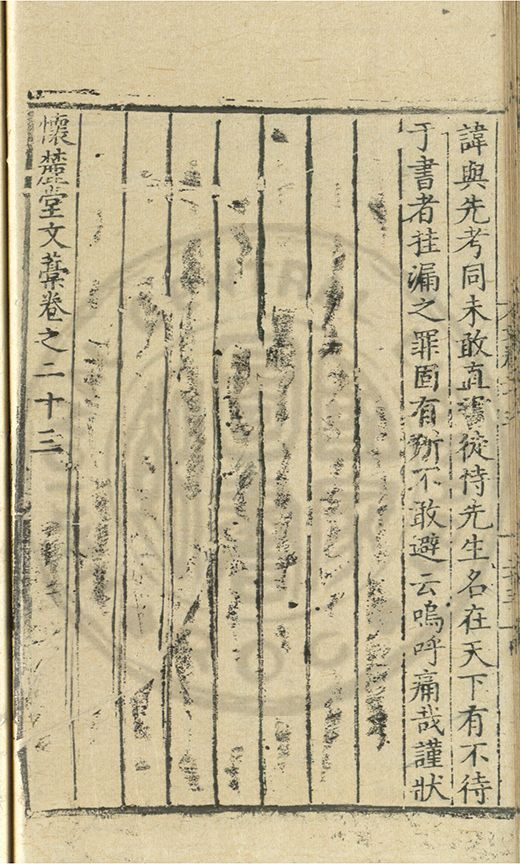 諱與先考同未敢直書徒恃先生名在天下有不待
于書者挂漏之罪固有所不敢避云嗚呼痛哉謹狀
懷麓堂文藁卷之二十三